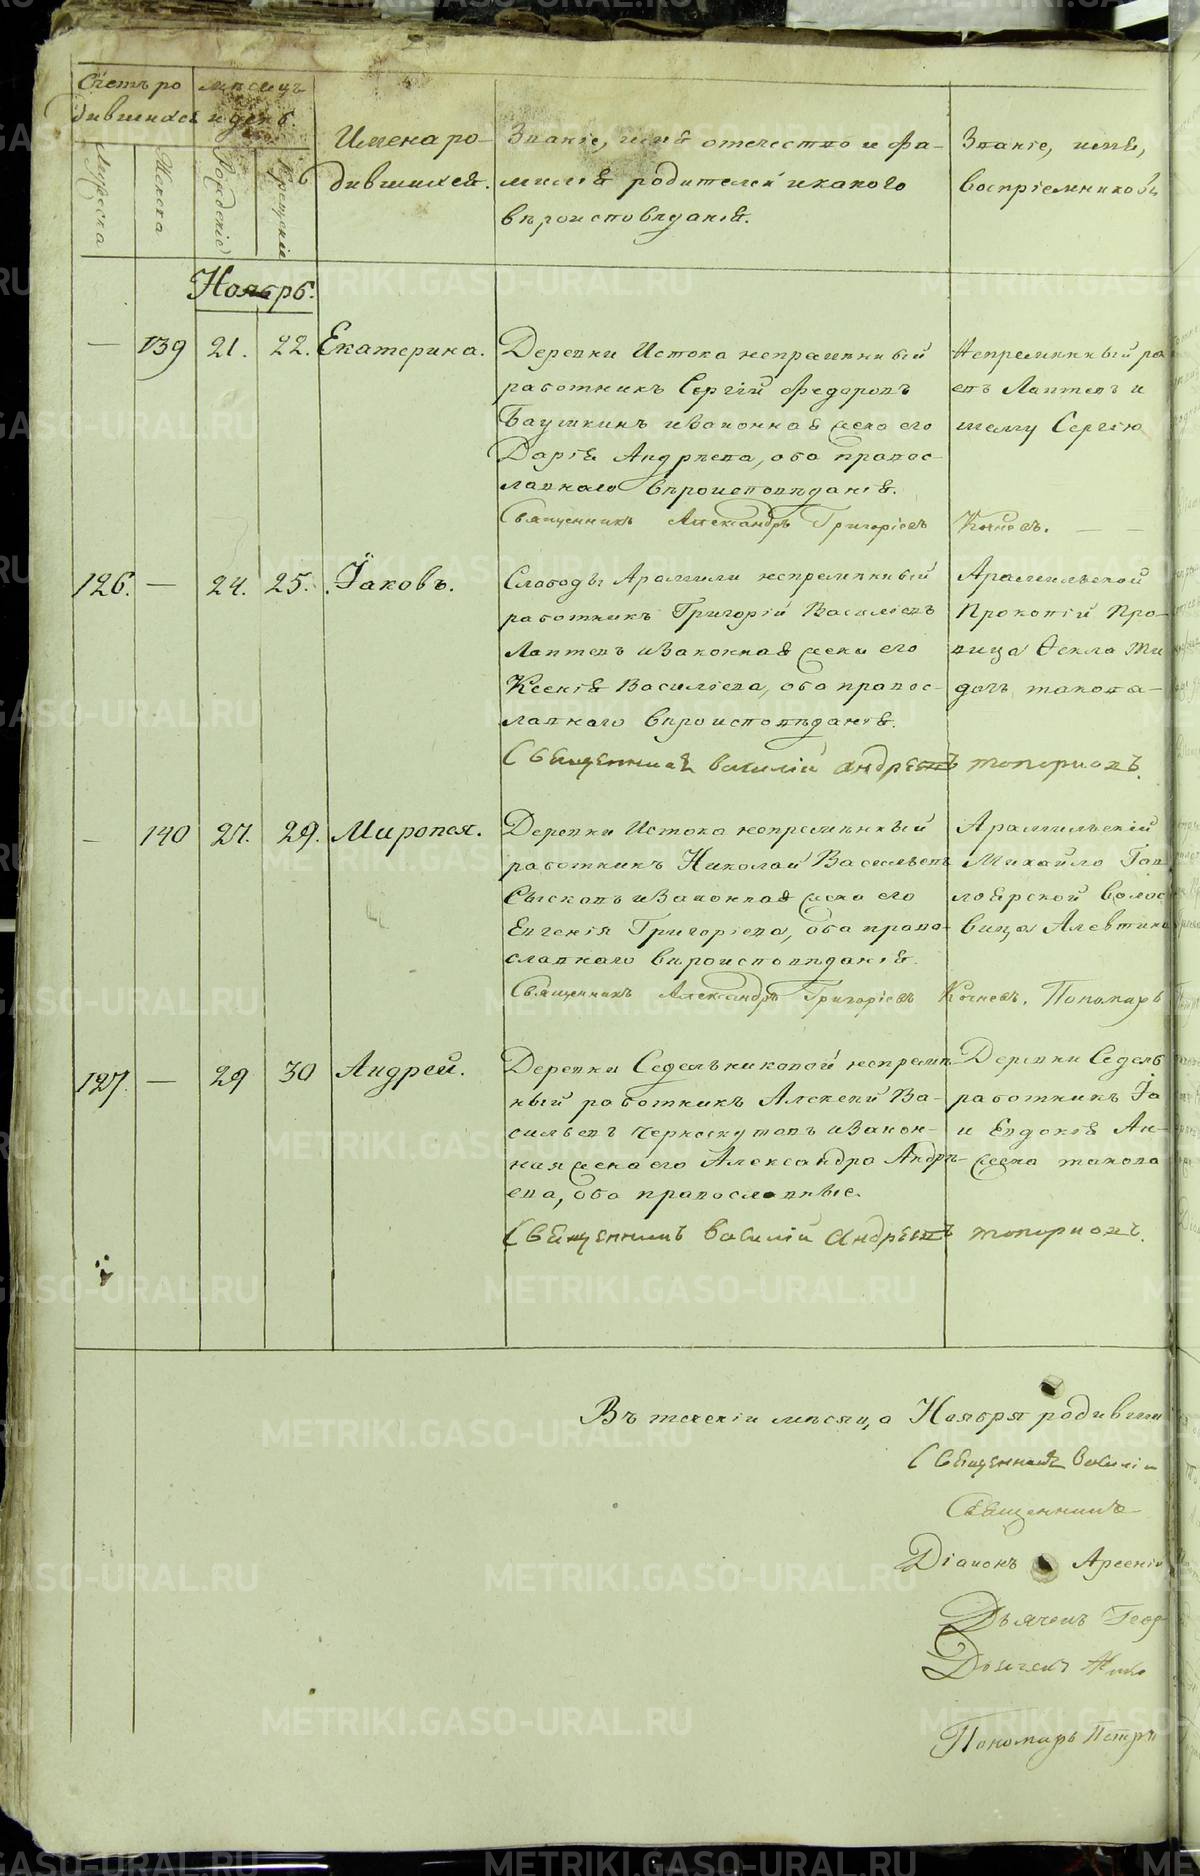 Счетъ ро
дившихся
мѣсяцъ
и день.
Мужеска
Женска
Рожденіе
Крещеніе
Имена ро-
дившихся.
Званіе, имя отечество и фа-
милія родителей и какого
вѣроисповѣданія.
Званіе, имя,
воспріемниковъ
Ноябрь.
— 139 21. 22. Екатерина.
Деревни Истока непремѣнный
работникъ Сергій Федоровъ
Баушкинъ и законная жена его
Дарія Андрѣева, оба правос-
лавнаго вѣроисповѣданія.
Священникъ Александръ Григоріевъ Кочневъ.
Непремѣнный ра
евъ Лаптевъ и
шему Сергію
126. — 24. 25. Іаковъ.
Слободы Арамили непремѣнный
работникъ Григорій Василіевъ
Лаптевъ и законная жена его
Ксенія Василіева, оба правос-
лавнаго вѣроисповѣданія.
Священникъ Василій Андреевъ Топорковъ.
Арамильской
Прокопій Про-
вица Ѳекла Ти
дочь такова-
— 140 27. 29. Миропея.
Деревни Истока непремѣнный
работникъ Николай Васильевъ
Сысковъ и законная жена его
Евгенія Григоріева, оба право-
славнаго вѣроисповѣданія.
Священникъ Александръ Григоріевъ Кочневъ. Пономарь
Арамильскій
Михайло Гав
лоярской волос
вица Алевтина
127. — 29 30 Андрей.
Деревни Седельниковой непремѣн-
ный работникъ Алексей Ва-
сильевъ Черноскутовъ и закон-
ная жена его Александра Андрѣ-
ева, оба православные.
Священникъ Василій Андреевъ Топорковъ.
Деревни Седель
работникъ Іа
и Евдокія Ан-
жена такова
Въ теченіи мѣсяца Ноября родивши
Священникъ Василій
Священникъ
Діаконъ Арсеній
Дьячекъ Геор
Дьячекъ Нико
Пономарь Петръ
METRIKI.GASO-URAL.RU